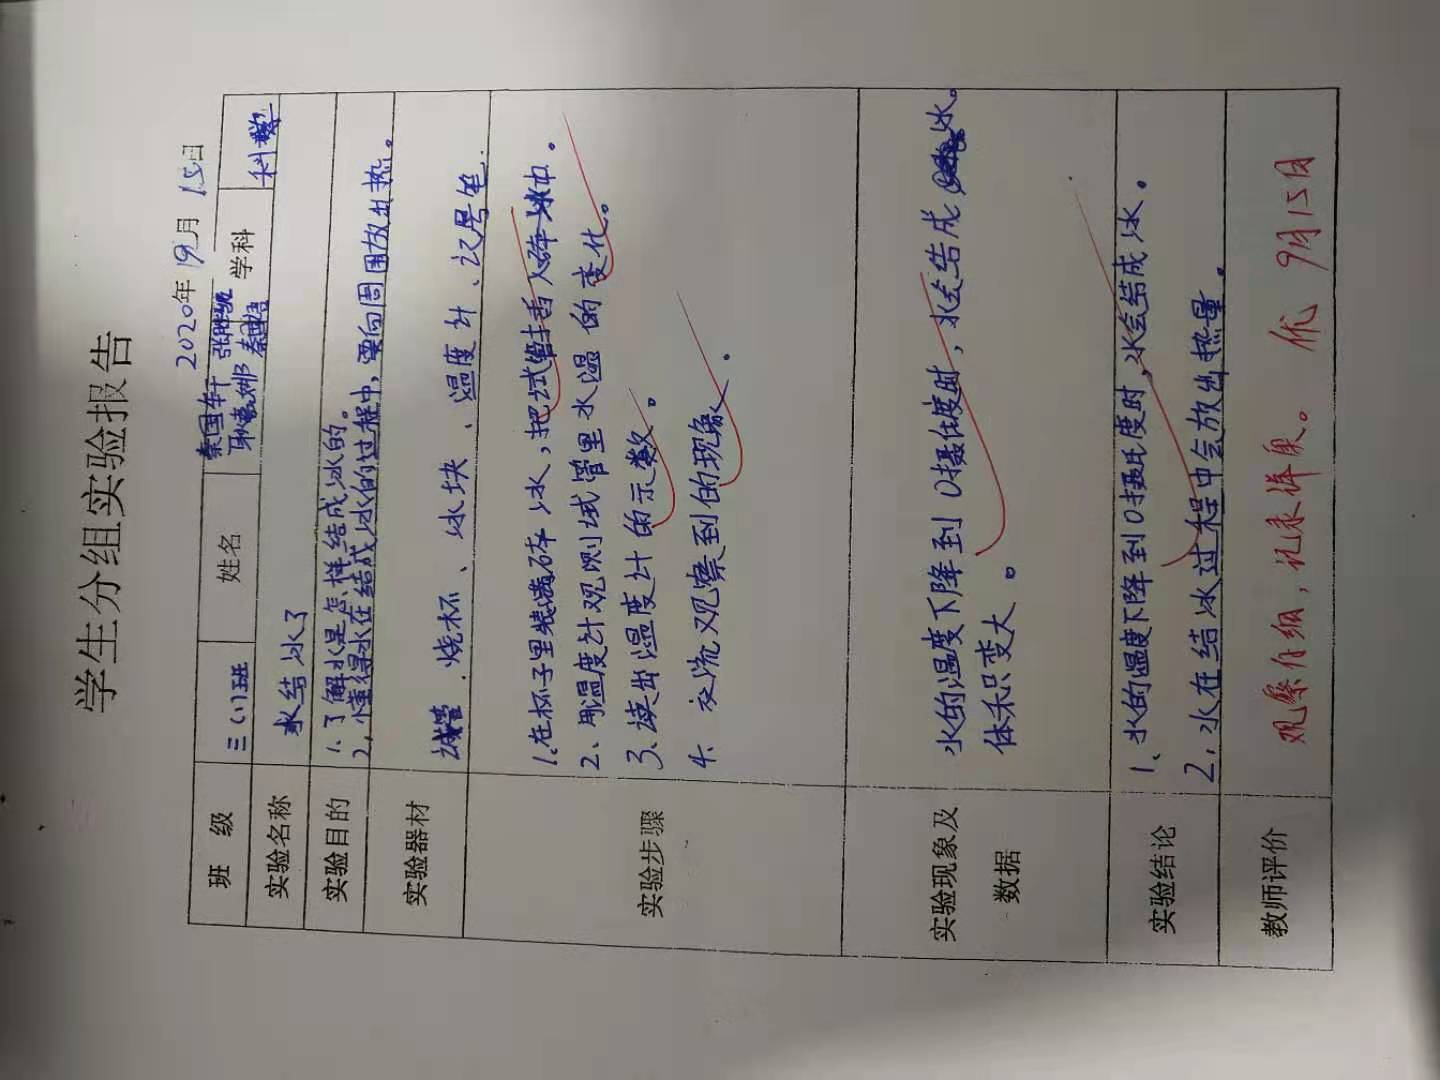 学生分组实验报告
2020年 9月 15日
班 级 三(1)班 姓名 秦国轩 学科 科学
实验名称 水结冰了
实验目的 1.了解水是怎样结成冰的。
2.懂得水在结成冰的过程中,要向周围放出热。
实验器材 试管、烧杯、冰块、温度计、记号笔.
实验步骤
1.在杯子里装满碎冰,把试管插入碎冰中。
2、用温度计观测试管里水温的变化。
3、读出温度计的示数。
4、交流观察到的现象.
实验现象及
数据
水的温度下降到0摄氏度时,水会结成冰。
体积变大。
实验结论
1、水的温度下降到0摄氏度时,水会结成冰.
2,水在结冰过程中会放出热量.
教师评价 观察仔细,记录详泉。 优 9月15日